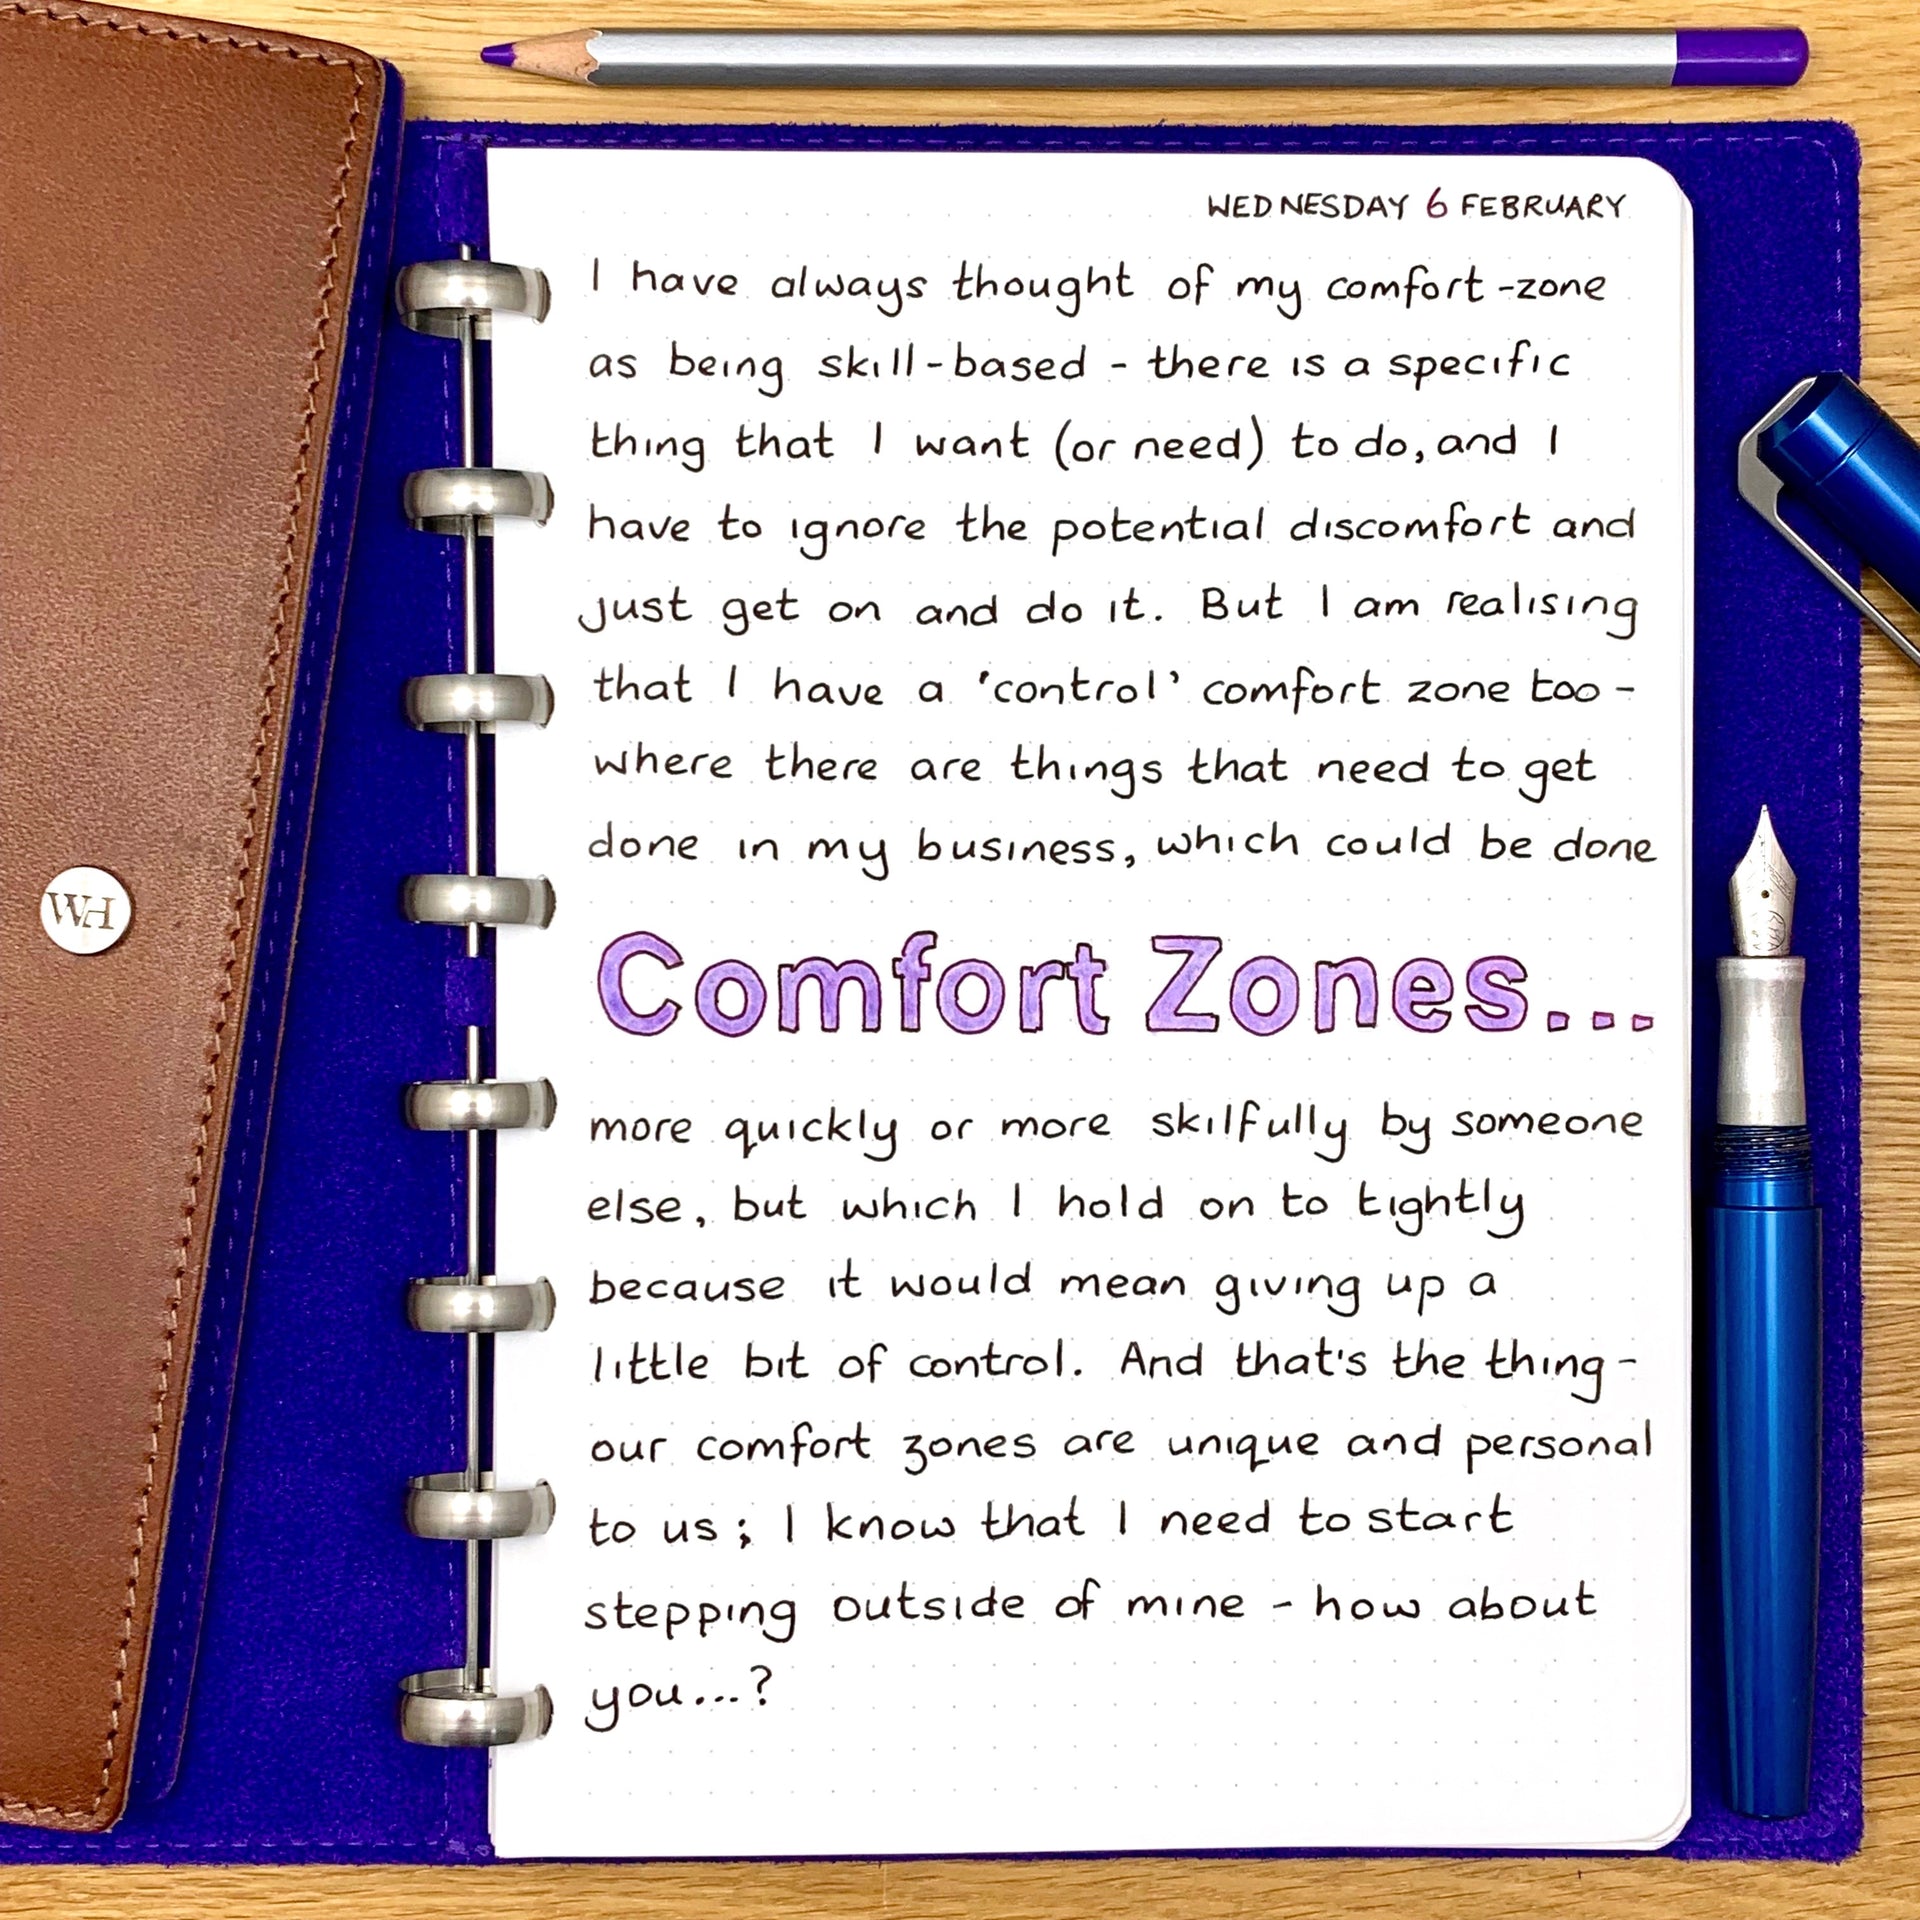 WH
WEDNESDAY 6 FEBRUARY
I have always thought of my comfort-zone
as being skill-based - there is a specific
thing that I want (or need) to do, and I
have to ignore the potential discomfort and
just get on and do it. But I am realising
that I have a 'control' comfort zone too -
where there are things that need to get
done in my business, which could be done
Comfort Zones...
more quickly or more skilfully by someone
else, but which I hold on to tightly
because it would mean giving up a
little bit of control. And that's the thing -
our comfort zones are unique and personal
to us; I know that I need to start
stepping outside of mine - how about
you...?